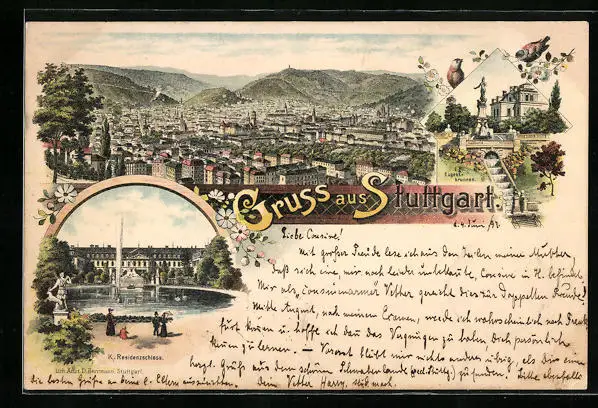 Gruss aus Stuttgart.
Eugens-
brunnen.
K. Residenzschloss.
Lith. Anst. D. Herrmann, Stuttgart.
Juni
Liebe Cousine!
Mit großer Freude lese ich aus den Zeilen meiner Mutter,
daß sich eine, mir noch leider unbekannte, Cousine in H. befindet
Mir als, Vetter doppelten Freude!
Mitte August, nach meinem Examen, werde ich wahrscheinlich nach
kommen u. hoffe ich dann das Vergnügen zu haben Dich persönlich
kennen zu lernen. – bleibt mir nichts andres übrig, als Dir einen
herzl. Gruß aus dem schönen Schwabenlande zu senden. Bitte ebenfalls
die besten Grüße an deine l. Eltern auszurichten. Dein Vetter Harry,